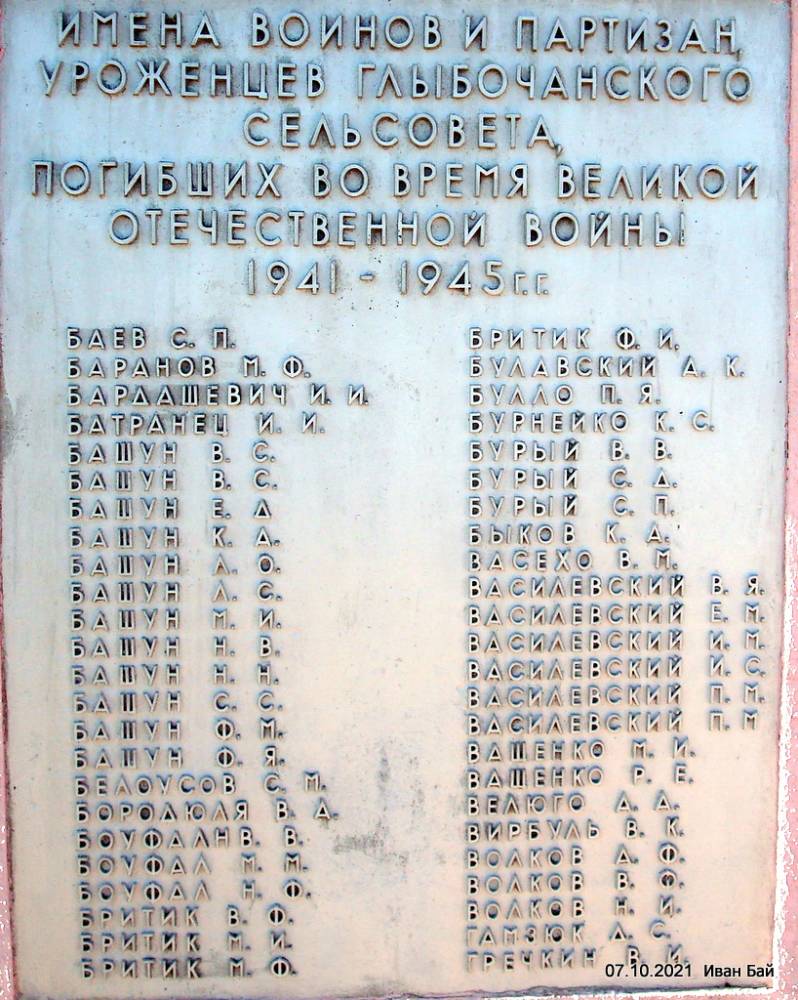 ИМЕНА ВОИНОВ И ПАРТИЗАН,
УРОЖЕНЦЕВ ГЛЫБОЧАНСКОГО
СЕЛЬСОВЕТА,
ПОГИБШИХ ВО ВРЕМЯ ВЕЛИКОЙ
ОТЕЧЕСТВЕННОЙ ВОЙНЫ
1941 - 1945 г.г.
БАЕВ С. П.
БАРАНОВ М. Ф.
БАРДАШЕВИЧ И. И.
БАТРАНЕЦ И. И.
БАШУН В. С.
БАШУН В. С.
БАШУН Е. Д
БАШУН К. А.
БАШУН Л. О.
БАШУН Л. С.
БАШУН М. И.
БАШУН Н. В.
БАШУН Н. Н.
БАШУН С. С.
БАШУН Ф. М.
БАШУН Ф. Я.
БЕЛОУСОВ С. М.
БОРОДЮЛЯ В. Д.
БОУФАЛ Н В. В.
БОУФАЛ М. М.
БОУФАЛ Н. Ф.
БРИТИК В. Ф.
БРИТИК М. И.
БРИТИК М. Ф.
БРИТИК Ф. И.
БУЛАВСКИЙ А. К.
БУЛЛО П. Я.
БУРНЕЙКО К. С.
БУРЫЙ В. В.
БУРЫЙ С. Д.
БУРЫЙ С. П.
БЫКОВ К. А.
ВАСЕХО В. М.
ВАСИЛЕВСКИЙ В. Я.
ВАСИЛЕВСКИЙ Е. М.
ВАСИЛЕВСКИЙ И. М.
ВАСИЛЕВСКИЙ И. С.
ВАСИЛЕВСКИЙ П. М.
ВАСИЛЕВСКИЙ П. М
ВАШЕНКО М. И.
ВАШЕНКО Р. Е.
ВЕЛЮГО А. А.
ВИРБУЛЬ В. К.
ВОЛКОВ А. Ф.
ВОЛКОВ В. Ф.
ВОЛКОВ Н. И.
ГАМЗЮК А. С.
ГРЕЧКИН В. И.
07.10.2021 Иван Бай